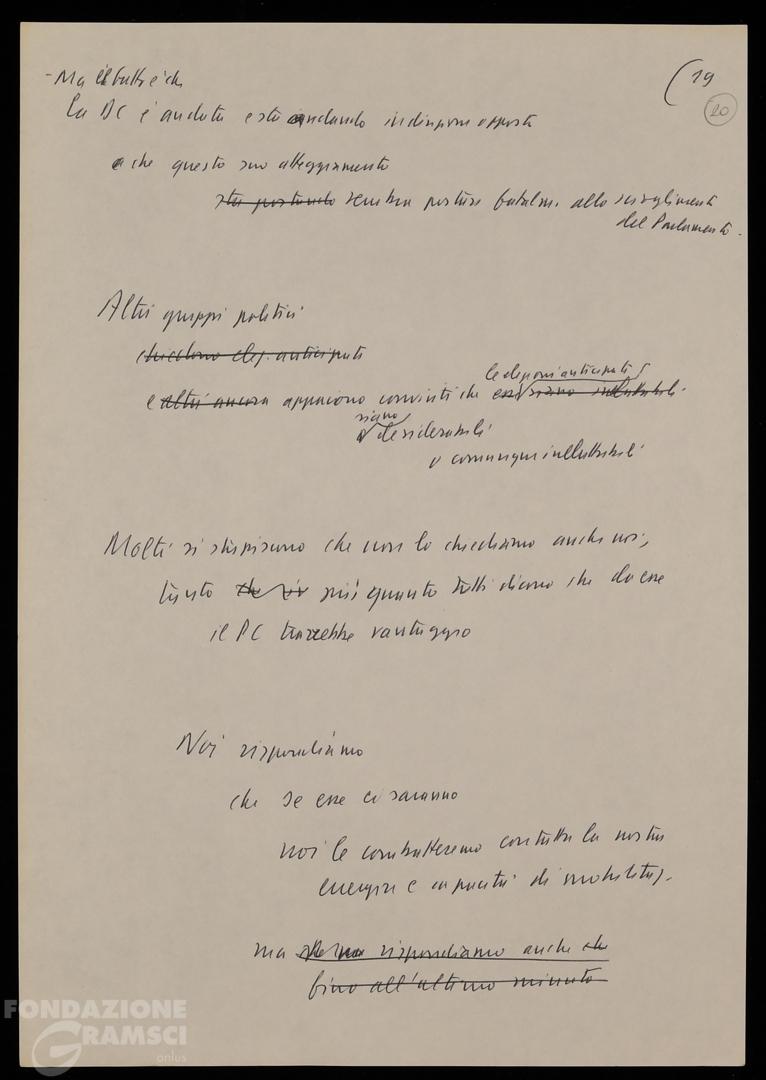 - Ma il fatto è che
(19
20
la DC è andata e sta andando in direzione opposta
e che questo suo atteggiamento
sta portando sembra portare fatalm. allo scioglimento
del Parlamento.
Altri gruppi politici
chiedono elez. anticipate
le elezioni anticipate
e altri ancora appaiono convinti che esse siano ineluttabili
siano
o desiderabili
o comunque ineluttabili
Molti si stupiscono che non lo chiediamo anche noi,
tanto che più quanto tutti dicono che da esse
il PC trarrebbe vantaggio
Noi rispondiamo
che se esse ci saranno
noi le combatteremo con tutta la nostra
energia e capacità di mobilitaz.
ma rispondiamo anche che
fino all'ultimo minuto
FONDAZIONE
GRAMSCI
onlus